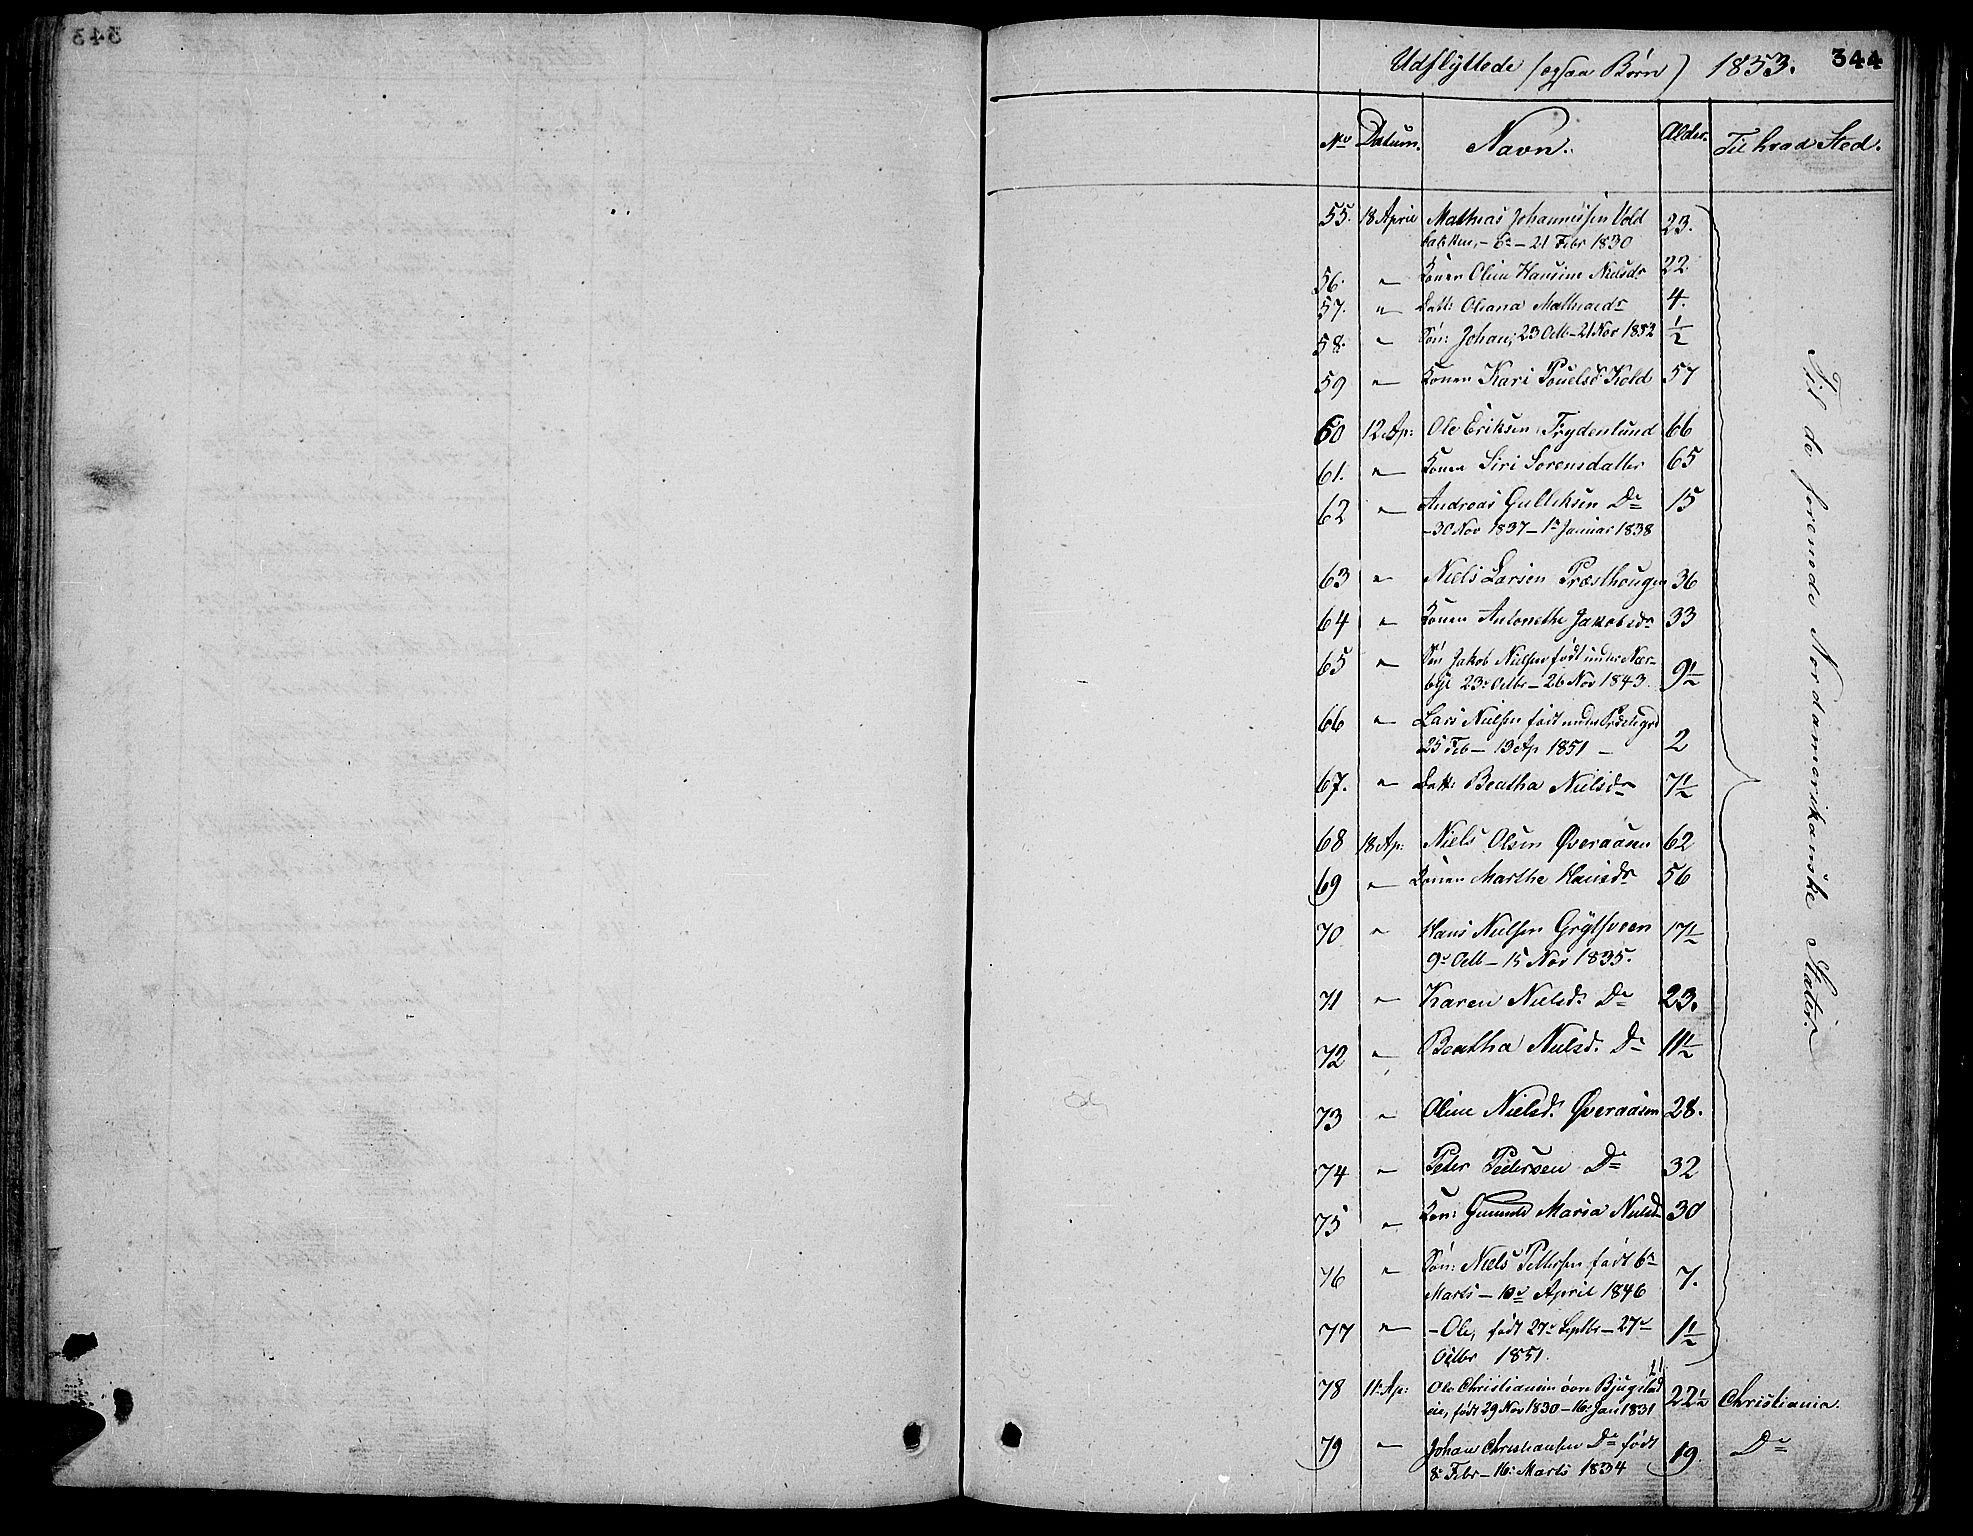 343
Udflyttede (ogsaa Børn) 1853. 344
No Datum. Navn. Alder. Til hvad Sted.
55. 18 April Mathias Johannessen Vold 23.
bakken, - 6te - 21 Febr 1830
56. " Konen Oline Hansine Nielsdr 22
57. " Datt: Oliana Mathiasdr 4.
58. " Søn: Johan, 23 Octb - 21 Nov 1852 ½
59 " Konen Kari Pouelsd: Kold 57
60 12 Ap: Ole Eriksen Frydenlund 66
61. " Konen Siri Sorensdatter 65
62 " Andreas Gulliksen Do 15
- 30 Nov 1837 - 1 Januar 1838
63 " Niels Larsen Præsthougen 36
64 " Konen Antonethe Jakobsdr 33
65 " Søn Jakob Nielsen født under Nær-
bye 23 Octbr - 26 Nov 1843. 9½
66 " Lars Nielsen født under
25 Feb - 13 Ap 1851 - 2
67. " Datt: Beatha Nielsdr 7½
68 18 Ap: Niels Olsen Øveraasen 62
69 " Konen Marthe Hansdr 56
70 " Hans Nielsen Grythveen 17½
9 Octb - 15 Nov 1835.
71 " Karen Nielsd: Do 23.
72 " Beatha Nielsd. Do 11½
73 " Oline Nielsd. Øveraasen 28.
74 " Peter Pedersen Do 32
75 " Kon: Gunnild Maria Nielsd 30
76 " Søn: Niels Pettersen født 6te
Marts - 10de April 1846 7.
77 " - Ole, født 27 Septbr - 27
Octbr 1851. 1½
Til de forenede Nordamerikanske Stater.
78 11 Ap: Ole Christiansen øvre Bjugstad
eie, født 29 Nov 1830 - 16 Jan 1831 22½ Christiania.
79 " Johan Christiansen Do født
8 Febr - 16 Marts 1834 19. Do